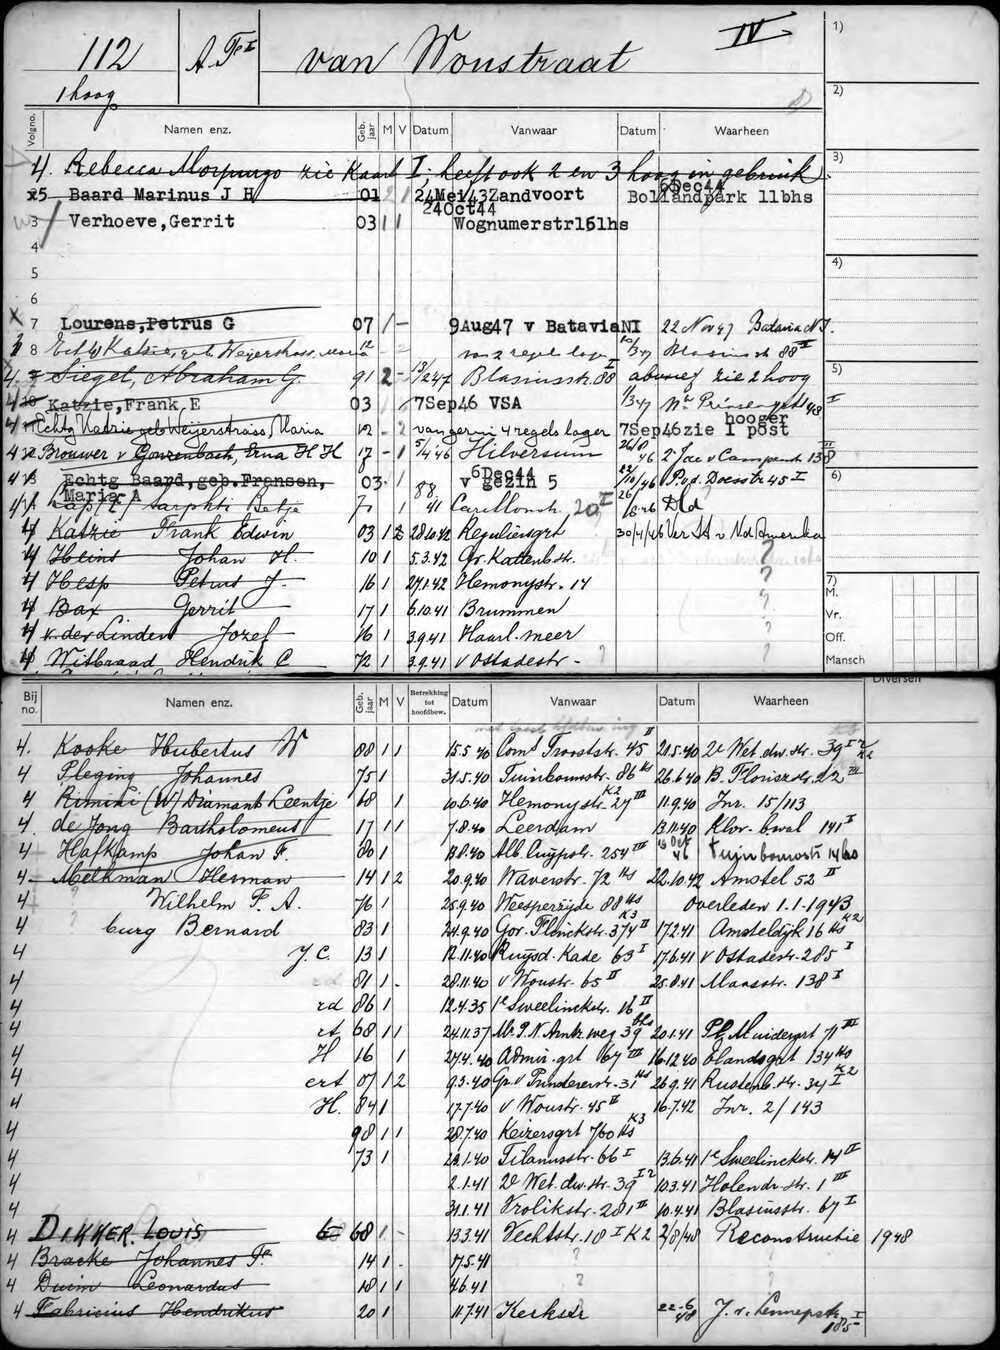 112 A. Fe I van Woustraat IV
1 hoog
1)
2)
3)
4)
5)
6)
7)
M.
Vr.
Off.
Mansch
Volgno. Namen enz. Geb. jaar M V Datum Vanwaar Datum Waarheen
4. Rebecca Morpurgo zie Kaart I, heeft ook 2 en 3 hoog in gebruik.
25 Baard Marinus J H 01 24Mei'43 Zandvoort 6Dec44 Bollandpark 11bhs
3 Verhoeve, Gerrit 03 1 24Oct44 Wognumerstr15lhs
4
5
6
7 Lourens, Petrus G 07 1 - 9Aug47 v BataviaNI 22 Nov 47 Batavia N.I.
8 Echtg Katzie, geb. Weijerstrass, Maria 12 - 2 van 2 regels lager /3 47 Blasiusstr 88 II
4. Siegel, Abraham G. 91 2 - /2 47 Blasiusstr. 88 I abusief zie 2 hoog
4 10 Katzie, Frank, E 03 7Sep46 VSA /3 47 Nr Prinsengracht
4 Echtg Katzie geb Weijerstrass, Maria 12 - 2 van 4 regels lager 7Sep46 zie 1 hooger post
4 12 Brouwer v Gonzenbach, Erna H H 17 - 1 5/4 '46 Hilversum 46 2 Jac v Campenstr 138 III
4 13 Echtg Baard, geb. Fransen, Maria A 03 1 v 6Dec44 gezin 5 /10/46 P.v.d. Doesstr 45 I
4 Sarphti Betje 7 1 41 Carillonstr. 20 I 26 Dld
4 Katzie Frank Edwin 03 1 2 28.10.42 Reguliersgrt 30/4/46 Ver. St v Nd Amerika
4 Heins Johan H. 10 1 5.3.42 Gr. Kattenbstr. ?
4 Hesp Petrus J. 16 1 27.1.42 Hemonystr. 14 ?
4 Bax Gerrit 17 1 6.10.41 Brummen ?
4 v. der Linden Jozef 16 1 3.9.41 Haarl. meer ?
4 Witbraad Hendrik C 72 1 3.9.41 v Ostadestr - ? ?
Diversen
Bij no. Namen enz. Geb. jaar M V Betrekking tot hoofdbew. Datum Vanwaar Datum Waarheen
4. Kooke Hubertus W 88 1 1 15.5.40 Comd Trooststr. 45 II 21.5.40 2e Wet. dw. str. 39 I K2
4 Pleging Johannes 75 1 31.5.40 Tuinbouwstr. 86 hs 26.6.40 B. Floriszstr. 22 III
4 Rimini (W) Diamant Leentje 68 1 10.6.40 Hemonystr. 27 III K2 11.9.40 Inr. 15/113
4. de Jong Bartholomeus 17 1 1 7.8.40 Leerdam 13.11.40 Klov. bwal 141 I
4 Hafkamp Johan F. 80 1 13.8.40 Alb. Cuijpstr. 254 III 16 Oct 46 Tuinbouwstr 14 hs
4 Melkman Herman 14 1 2 20.9.40 Waverstr. 72 hs 22.10.42 Amstel 52 II
4 Wilhelm F. A. 76 1 25.9.40 Weesperzijde 88 hs Overleden 1.1.1943
4 burg Bernard 83 1 24.9.40 Gov. Flinckstr. 374 II K3 17.2.41 Amsteldijk 16 hs K2
4 J. C. 13 1 12.11.40 Ruijsd. Kade 63 I 17.6.41 v Ostadestr. 285 I
4 rd 81 1 - 28.11.40 v Woustr. 65 II 25.8.41 Maasstr. 138 I
4 rd 86 1 12.4.35 1e Sweelinckstr. 16 II
4 rt 68 1 1 24.11.37 Mr. P. N. Arntz. weg 39 bhs 20.1.41 Pl. Muidergrt 71 III
4 H 16 1 27.4.40 Admir. grt 67 III 16.12.40 Elandsgrt 134 hs
4 ert 07 1 2 9.5.40 Gr. v Prinstererstr. 31 hs 26.9.41 Rustenb. str. 34 I K2
4 H. 84 1 17.7.40 v Woustr. 45 II 16.7.42 Inr. 2/143
4 98 1 1 28.7.40 Keizersgrt 760 hs K3
4 73 1 29.1.40 Tilanusstr. 66 I 13.6.41 1e Sweelinckstr. 14 II
4 2.1.41 2e Wet. dw. str. 39 I 2 10.3.41 Holendr. str. 1 III
4 31.1.41 Vrolikstr. 281 II 10.4.41 Blasiusstr. 67 I
4 DIKKER. LOUIS 68 1 - 13.3.41 Vechtstr. 18 I K2 2/8/48 Reconstructie 1948
4 Bracke Johannes Fe. 14 1 - 17.5.41 ?
4 Duim Leonardus 18 1 1 4.6.41 ? ?
4 Fabricius Hendrikus 20 1 11.7.41 Kerkstr ? 22-6 /48 J. v. Lennepstr 185 I